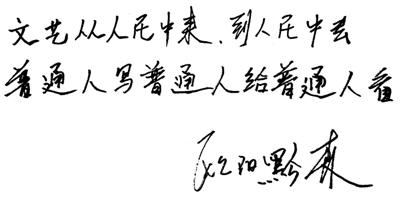 文艺从人民中来、到人民中去
普通人写普通人给普通人看
欧阳黔森